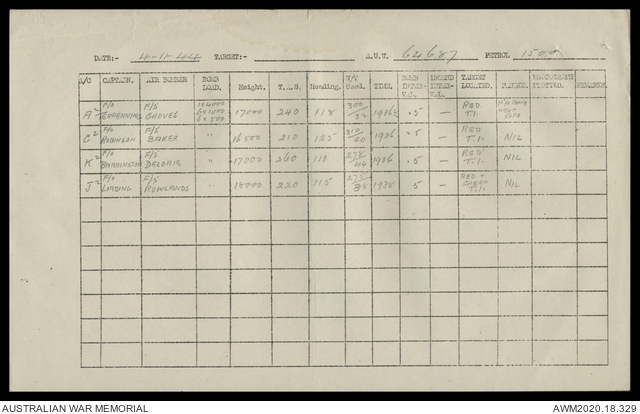 DATE:- 4-11-44 TARGET:- A.U.W. 64687 PETROL 1500
A/C CAPTAIN. AIR BOMBER BOMB LOAD. Height. T.A.S. Heading. W/V Used. TIME. BOMB INTER- VAL. INTER- VAL. TARGET LOCATED. PLOTTED. REMARKS.
A² F/O F/S GROVES 1x4000 6x1000 6x500 17000 240 118 300/32 1936½ .5 — RED T.I.
C² F/O ROBINSON F/S BAKER " 16500 210 125 310/20 1936 .5 — RED T.I. NIL
K² F/O BARRINGTON F/S DELORIE " 17000 260 118 278/44 1936 .5 — RED T.I. NIL
J² F/O LIDDING F/S ROWLANDS " 18000 220 115 273/38 1938 .5 — RED + GREEN T.I. NIL
AUSTRALIAN WAR MEMORIAL AWM2020.18.329